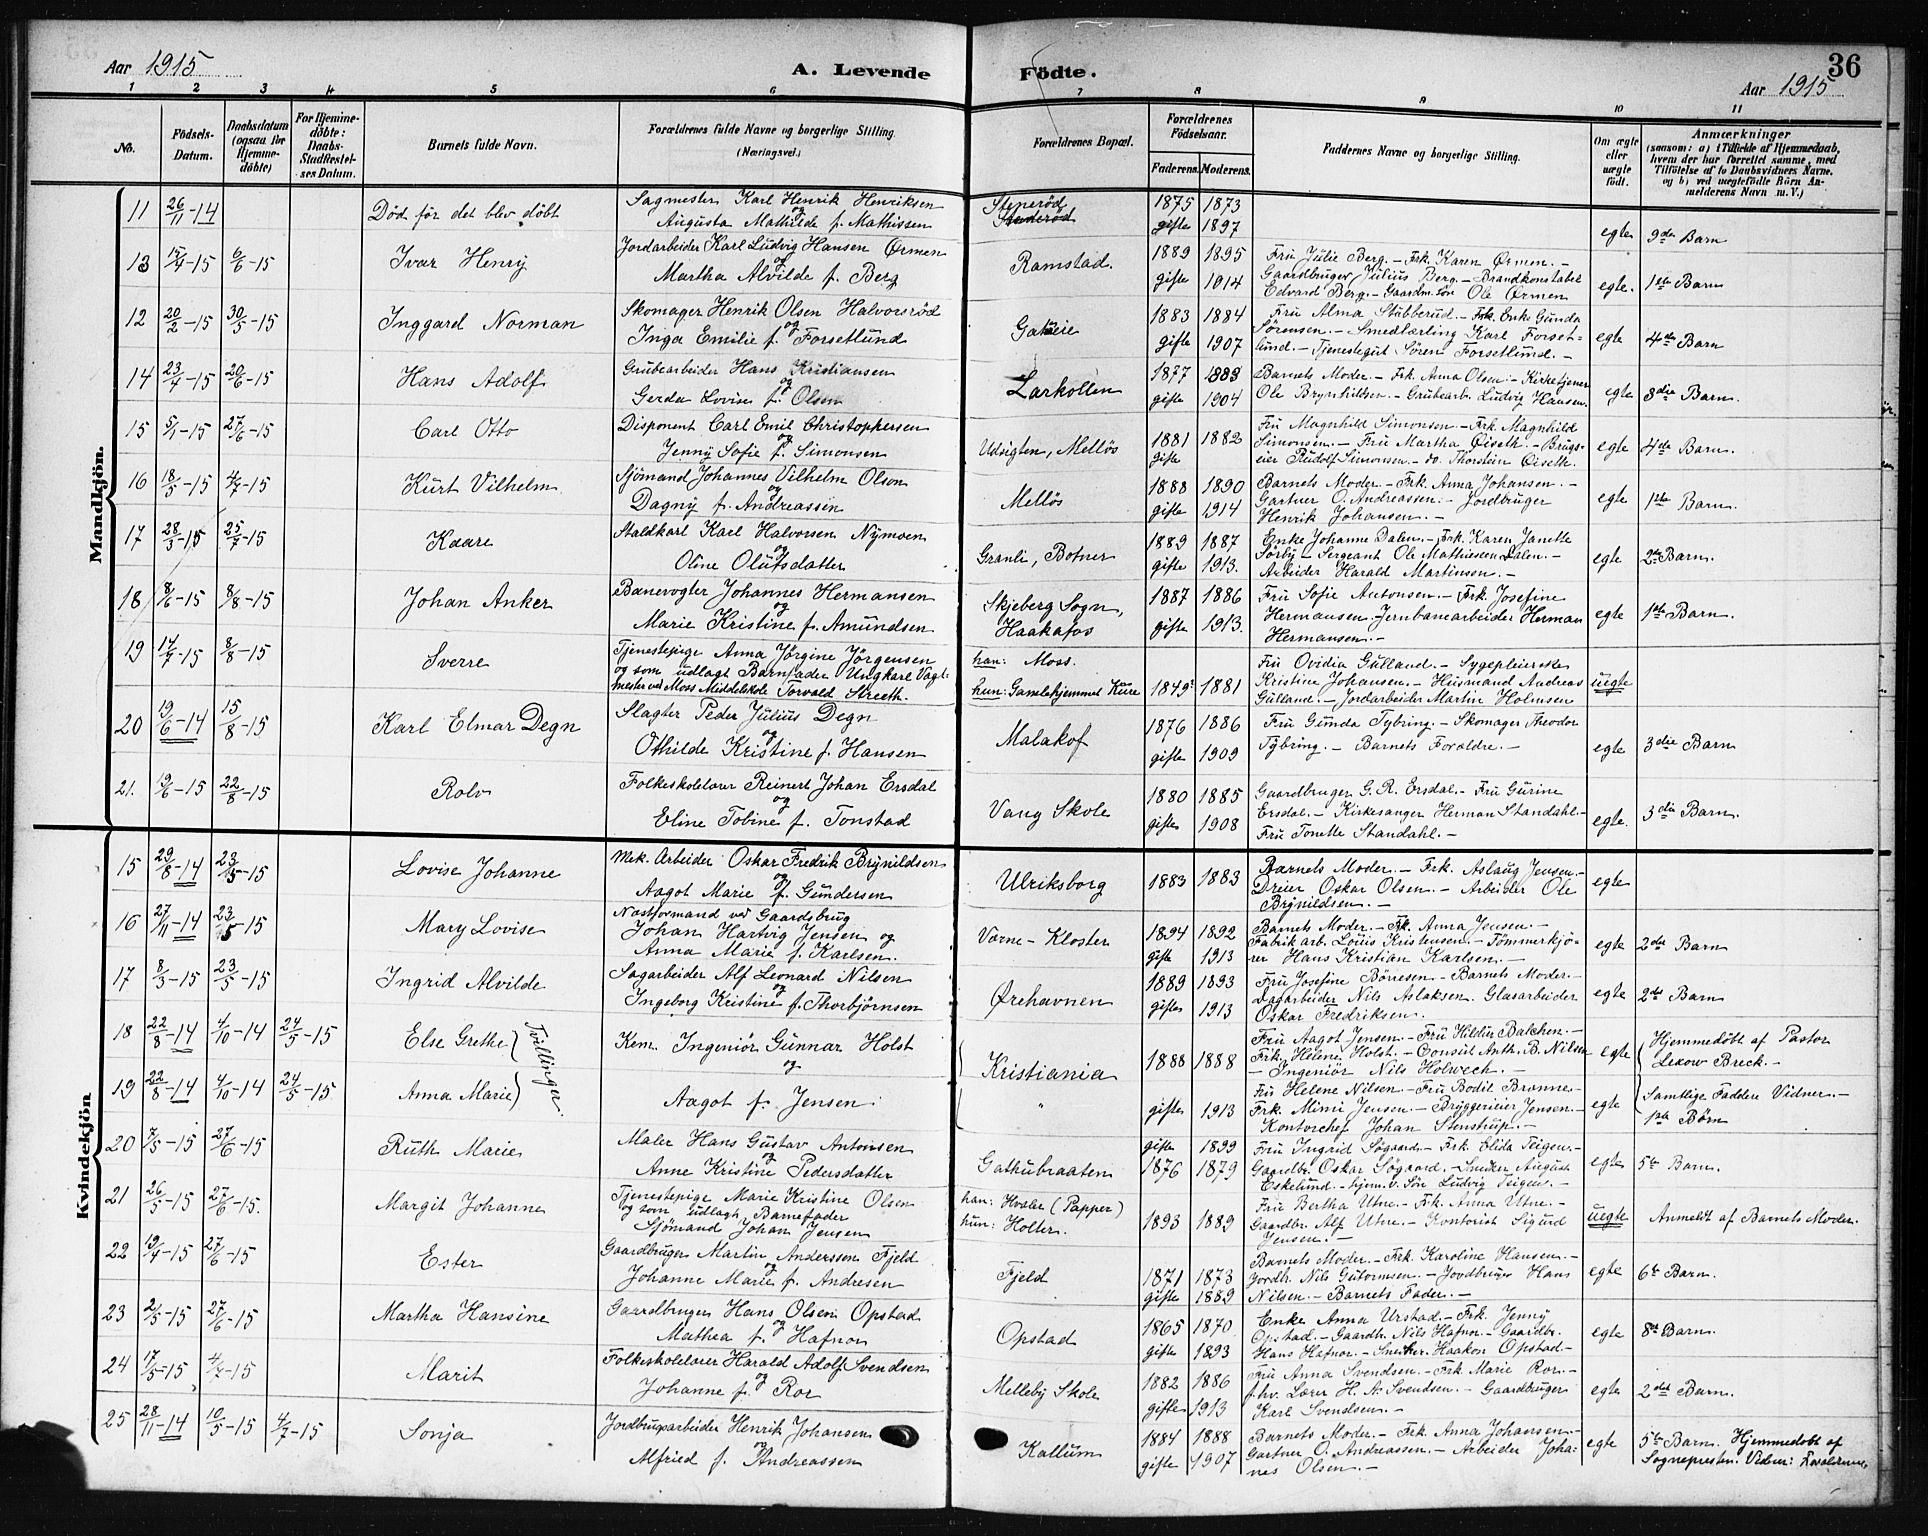 Aar 1915
A. Levende
Födte.
36
Aar 1915
1 2 3 4 5 6 7 8 9 10 11
No.
Födsels-
Datum.
Daabsdatum
(ogsaa for
Hjemme-
döbte)
For Hjemme-
döbte:
Daabs-
Stadfæstel-
ses Datum.
Barnets fulde Navn.
Forældrenes fulde Navne og borgerlige Stilling.
(Næringsvei.)
Forældrenes Bopæl.
Forældrenes
Födselsaar.
Faderens. Moderens.
Faddernes Navne og borgerlige Stilling.
Om ægte
eller
uægte
födt.
Anmærkninger
(saasom: a) i Tilfælde af Hjemmedaab,
hvem der har forrettet samme, med
Tilföielse af to Daabsvidners Navne.
og b) ved uægtefödte Börn An-
melderens Navn m. V.)
Mandkjön.
11 26/11-14 Död før det blev döbt Sagmester Karl Henrik Henriksen
og
Augusta Mathilde f. Mathissen
Steneröd 1875 1873
gifte 1897 egte 9de Barn
13 15/4-15 6/6-15 Ivar Henry Jordarbeider Karl Ludvig Hansen Ørmen
og
Martha Alvilde f. Berg
Ramstad. 1889 1895 Fru Julie Berg. - Frk. Karen Ørmen. -
gifte 1914 Gaardbruger Julius Berg. - Brandkonstabel
Edvard Berg. - Gaardm.søn Ole Ørmen egte. 1ste Barn
12 20/2-15 30/5-15 Inggard Norman Skomager Henrik Olsen Halvorsröd
og
Inga Emilie f. Forsetlund
1883 1884 Fru Alma Stubberud. - Enke Gunda
gifte 1907 Sørensen. - Smedlærling Karl Forset-
lund. - Tjenestegut Sören Forsetlund. - egte 4de Barn
14 23/4-15 20/6-15 Hans Adolf Grubearbeider Hans Kristiansen
og
Gerda Lovise f. Olsen
Larkollen 1877 1883 Barnets Moder. - Frk. Anna Olsen. - Kirketjener
gifte 1904 Ole Brynhildsen. - Grubearb. Ludvig Hansen. egte 3die Barn.
15 5/1-15 27/6-15 Carl Otto Disponent Carl Emil Christophersen
og
Jenny Sofie f. Simonsen
Udsigten, Mellös 1881 1882 Fru Magnhild Simonsen - Frk. Magnhild
gifte Simonsen. - Fru Martha Öiseth. - Brugs-
eier Rudolf Simonsen. - do. Thorstein Öiseth. egte 4de Barn.
16 18/5-15 4/7-15 Kurt Vilhelm Sjömand Johannes Vilhelm Olson
og
Dagny f. Andreassen
Mellös 1888 1890 Barnets Moder - Frk. Anna Johansen. -
gifte 1914 Gartner O. Andreassen. - Jordbruger
Henrik Johansen. - egte 1ste Barn.
17 28/3-15 25/7-15 Kaare Staldkarl Karl Halvorsen Nymoen
og
Oline Olufsdatter
Granli, Botner 1889 1887 Enke Johanne Dalen. - Frk. Karen Janette
gifte 1913. Sörby - Sergeant Ole Mathiesen Dalen. -
Arbeider Harald Martinsen. - egte 2de Barn.
18 8/6-15 8/8-15 Johan Anker Banevogter Johannes Hermansen
og
Marie Kristine f. Amundsen
Skjeberg Sogn,
Haakafos 1887 1886 Fru Sofie Antonsen. - Frk. Josefine
gifte 1913. Hermansen - Jernbanearbeider Herman
Hermansen. - egte 1ste Barn.
19 14/7-15 8/8-15 Sverre Tjenestepige Anna Jörgine Jörgensen
og som udlagt Barnefader Ungkarl Vagt-
mester ved Moss Middelskole Torvald Streeth.
han: Moss.
hun: Gamlehjemmet Kure 1849? 1881 Fru Ovidia Gulland. - Sygepleierske
Kristine Johansen. - Husmand Andreas
Gulland. - Jordarbeider Martin Holmsen uegte
20 19/6-14 15/8-15 Karl Elmar Degn Slagter Peder Julius Degn
og
Othilde Kristine f. Hansen
Malakof 1876 1886 Fru Gunda Tybring. - Skomager Theodor
gifte 1909 Tybring. - Barnets Forældre. - egte 3die Barn
21. 19/6-15 22/8-15 Rolv Folkeskolelærer Reinert Johan Ersdal
og
Eline Tobine f. Tonstad
Vang Skole 1880 1885 Gaardbruger G. R. Ersdal. - Fru Gurine
gifte 1908 Ersdal. - Kirkesanger Herman Standahl. -
Fru Tonette Standahl. - egte. 3die Barn.
Kvindekjön
15 29/8-14 23/5-15 Lovise Johanne Mek. Arbeider Oskar Fredrik Brynildsen
og
Aagot Marie f. Gundersen
Ulriksborg 1883 1883 Barnets Moder. - Frk. Aslaug Jensen. -
Dreier Oskar Olsen. - Arbeider Ole
Brynildsen. - egte
16 27/11-14 23/5-15 Mary Lovise Nastformand ved Gaardsbrug
Johan Hartvig Jensen og
Anna Marie f. Karlsen.
Varne-Kloster 1894 1892 Barnets Moder. - Frk. Anna Jensen. -
gifte 1913 Fabrikarb. Louis Kristensen. - Tömmerkjö-
rer Hans Kristian Karlsen. - egte 2det Barn
17 8/3-15 23/5-15 Ingrid Alvilde Sagarbeider Alf Leonard Nilsen
og
Ingeborg Kristine f. Thorbjörnsen
Ørehavnen 1889 1893 Fru Josefine Börresen - Barnets Moder. -
gifte 1913 Dagarbeider Nils Aslaksen. Glasarbeider
Oskar Fredriksen. egte 2det Barn
18 22/8-14 4/10-14 24/5-15 Else Grethe Tvillinger. Kem. Ingeniör Gunnar Holst
og
Kristiania 1888 1888 Fru Aagot Jensen - Fru Hildur Balchen. -
Frk. Helene Holst. - Consul Anth. B. Nilsen
- Ingeniör Nils Holwech. - egte Hjemmedöbt af Pastor
Lexow Breck. -
19 22/8-14 4/10-14 24/5-15 Anna Marie Aagot f. Jensen
" gifte 1913 Fru Helene Nilsen. - Fru Bodil Brønne -
Frk. Mimi Jensen - Bryggerieier Jensen. -
Kontorchef Johan Stenstrup. - egte Samtlige Faddere Vidner. -
1ste Børn
20 7/5-15 27/6-15 Ruth Marie Maler Hans Gustav Antonsen
og
Anne Kristine Pedersdatter
Gathubraaten gifte 1899 Fru Ingrid Sögaard - Frk. Elida Teigen. -
1876 1879 Gaardbr. Oskar Søgaard. - Snedker August
Eskelund. - hjem.v. Sön Ludvig Teigen. - egte 5te Barn.
21 26/5-15 27/6-15. Margit Johanne Tjenestepige Marie Kristine Olsen
og som udlagt Barnefader
Sjömand Johan Jensen
han: Hvaler (Papper)
hun: Holter. 1893 1889 Fru Bertha Utne. - Frk. Anna Utne. -
Gaardbr. Alf Utne. - Kontorist Sigurd
Jensen. - uegte Anmeldt af Barnets Moder.
22 19/4-15 27/6-15 Ester Gaardbruger Martin Anderssen Fjeld
og
Johanne Marie f. Andresen
Fjeld 1871 1873 Barnets Moder. - Frk. Karoline Hansen. -
gifte 1889 Jordb. Nils Gutormsen. - Jordbruger Hans
Nilsen - Barnets Fader. - egte 6te Barn.
23 2/5-15 27/6-15 Martha Hansine Gaardbruger Hans Olsen Opstad
og
Mathea f. Hafnor
Opstad 1865 1870 Enke Anna Urstad. - Frk. Jenny
gifte 1893 Opstad. - Gaardb. Nils Hafnor. - Gaardbr.
Hans Hafnor. - Snedker Haakon Opstad. - egte 8de Barn.
24 17/5-15 4/7-15 Marit Folkeskolelærer Harald Adolf Svendsen
og
Johanne f. Ror
Melleby Skole 1882 1886 Fru Anna Svendsen. - Frk Marie Ror. -
gifte 1913 f.hv. Lærer H. A. Svendsen. - Gaardbruger
Karl Svendsen. - egte 2det Barn.
25 28/11-14 10/5-15 4/7-15 Sonja Jordbrugsarbeider Henrik Johansen
og
Alfried f. Andreassen
Kallum 1884 1888 Barnets Moder. - Frk. Anna Johansen. -
gifte 1907 Gartner O. Andreassen. - Arbeider Joha-
nes Olsen. - egte 5te Barn. Hjemmedøbt af
Sognepresten. Vidner: Forældrene